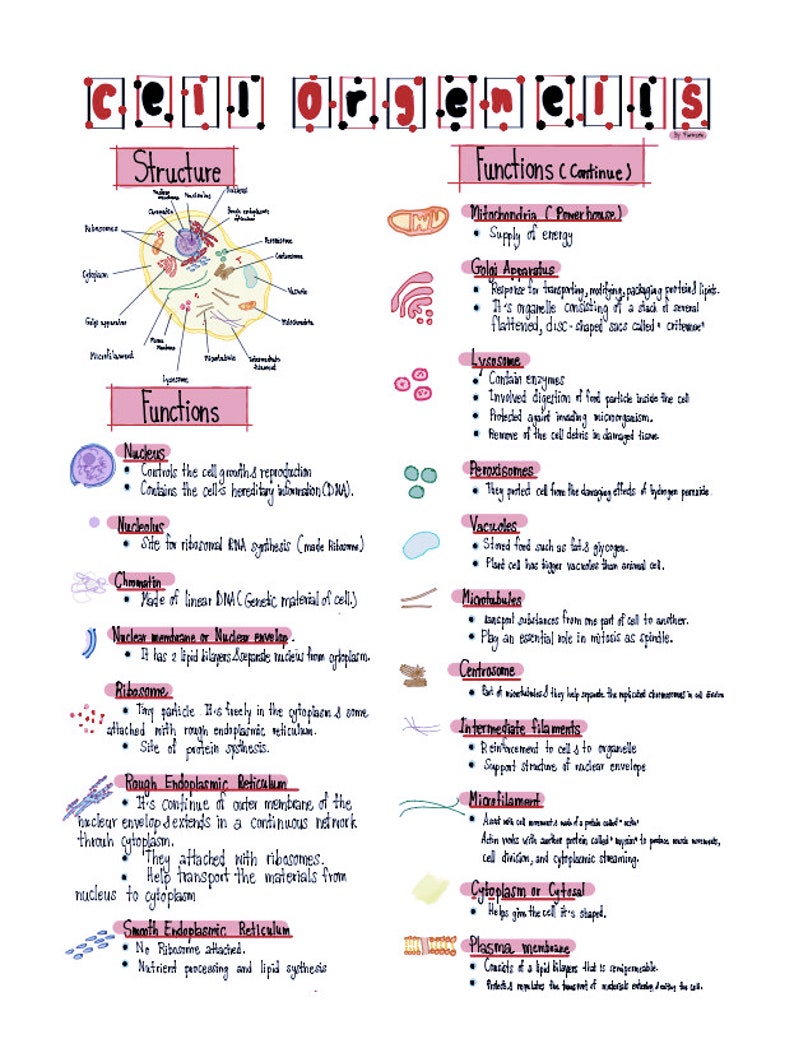 cell orgenells
Structure
Nuclear membrane
Nucleolus
Nucleus
Chromatin
Rough endoplasmic reticulum
Ribosomes
Peroxisome
Centrosome
Cytoplasm
Vacuole
Golgi apparatus
Mitochondria
Plasma Membrane
Microfilament
Microtubule
Intermediate filament
Lysosome
Functions
Nucleus
• Controls the cell growth & reproduction
• Contains the cell's hereditary information (DNA).
Nucleolus
• Site for ribosomal RNA synthesis (made Ribosome)
Chromatin
• Made of linear DNA (Genetic material of cell.)
Nuclear membrane or Nuclear envelop.
• It has 2 lipid bilayers & separate nucleus from cytoplasm.
Ribosome
• Tiny particle It's freely in the cytoplasm & some
attached with rough endoplasmic reticulum.
• Site of protein systhesis.
Rough Endoplasmic Reticulum
• It's continue of outer membrane of the
nuclear envelop & extends in a continuous network
through cytoplasm.
• They attached with ribosomes.
• Help transport the materials from
nucleus to cytoplasm
Smooth Endoplasmic Reticulum
• No Ribosome attached.
• Nutrient processing and lipid systhesis
Functions (Continue)
Mitochondria (Powerhouse)
• Supply of energy
Golgi Apparatus
• Response for transporting, modifying, packaging protein & lipids.
• It's organelle consisting of a stack of several
flattened, disc-shaped sacs called "criternae"
Lysosome
• Contain enzymes
• Involved digestion of food particle inside the cell
• Protected againt invading microorganism.
• Remove of the cell debris in damaged tissue.
Peroxisomes
• They protect cell from the damaging effects of hydrogen peroxide.
Vacuoles
• Stored food such as fat & glycogen.
• Plant cell has bigger vacuoles than animal cell.
Microtubules
• Transport substances from one part of cell to another.
• Play an essential role in mitosis as spindle.
Centrosome
• Part of microtubules & they help separate the replicated chromosomes in cell division
Intermediate filaments
• Reinforcement to cell & to organelle
• Support structure of nuclear envelope
Microfilament
• Assist with cell movement & made of a protein called "actin"
Actin works with another protein called "myosin" to produce muscle movements,
cell division, and cytoplasmic streaming.
Cytoplasm or Cytosal
• Helps give the cell it's shaped.
Plasma membrane
• Consists of a lipid bilayers that is semipermeable.
• Protects & regulates the transport of materials entering & exiting the cell.